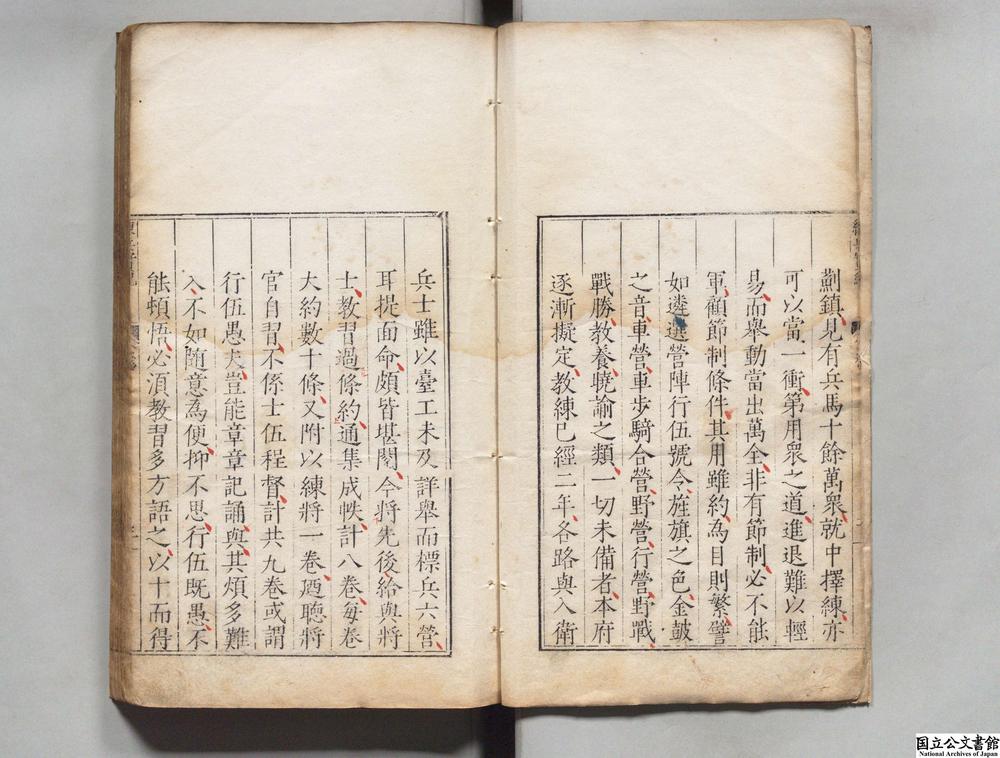 薊鎮見有兵馬十餘萬衆就中擇練亦
可以當一衝第用衆之道進退難以輕
易而舉動當出萬全非有節制必不能
軍顧節制條件其用雖約為目則繁譬
如遴選營陣行伍號令旌旗之色金鼓
之音車營車步騎合營野營行營野戰
戰勝教養曉諭之類一切未備者本府
逐漸擬定教練已經二年各路與入衛
兵士雖以臺工未及詳舉而標兵六營
耳提面命頗皆堪閱今將先後給與將
士教習過條約通集成帙計八卷每卷
大約數十條又附以練將一卷迺聽將
官自習不係士伍程督計共九卷或謂
行伍愚夫豈能章章記誦與其煩多難
入不如隨意為便抑不思行伍既愚不
能頓悟必須教習多方語之以十而得
国立公文書館
National Archives of Japan